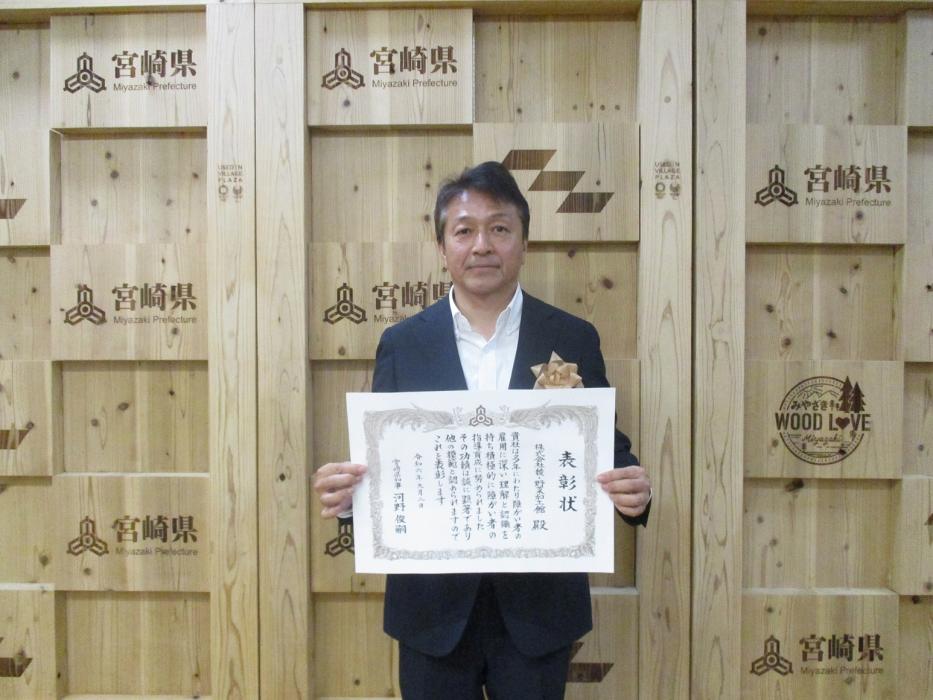 宮崎県
Miyazaki Prefecture
宮崎県
Miyazaki Prefecture
USED IN
VILLAGE
PLAZA
USED IN
VILLAGE
PLAZA
宮崎県
Miyazaki Prefecture
宮崎県
Miyazaki Prefecture
宮崎
みやざき
WOOD LOVE
Miyazaki
宮崎県
Miyazaki Prefecture
宮崎県
Miyazaki Prefecture
表彰状
殿
貴社は多年にわたり障がい者の
雇用に深い理解と認識を
持ち積極的に障がい者の
指導育成に努められました
その功績は誠に顕著であり
他の模範と認められますので
これを表彰します
令和六年九月二日
宮崎県知事 河野俊嗣